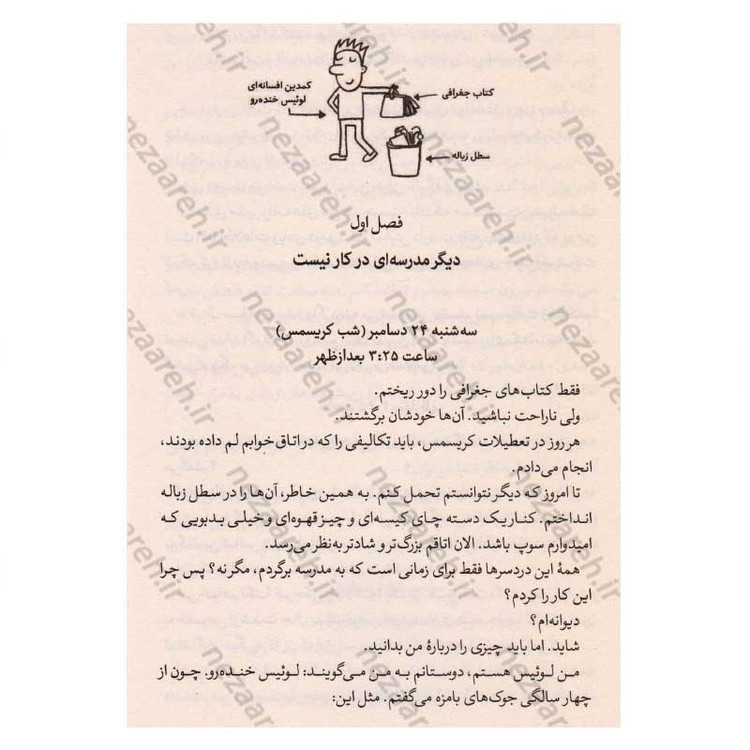 کمدین افسانه‌ای
لوئیس خنده‌رو
کتاب جغرافی
سطل زباله
فصل اول
دیگر مدرسه‌ای در کار نیست
سه‌شنبه ۲۴ دسامبر (شب کریسمس)
ساعت ۳:۲۵ بعدازظهر
فقط کتاب‌های جغرافی را دور ریختم.
ولی ناراحت نباشید. آن‌ها خودشان برگشتند.
هر روز در تعطیلات کریسمس، باید تکالیفی را که در اتاق خوابم لم داده بودند،
انجام می‌دادم.
تا امروز که دیگر نتوانستم تحمل کنم. به همین خاطر، آن‌ها را در سطل زباله
انداختم. کنار یک دسته چای کیسه‌ای و چیز قهوه‌ای و خیلی بدبویی که
امیدوارم سوپ باشد. الان اتاقم بزرگ‌تر و شادتر به نظر می‌رسد.
همهٔ این دردسرها فقط برای زمانی است که به مدرسه برگردم، مگر نه؟ پس چرا
این کار را کردم؟
دیوانه‌ام؟
شاید. اما باید چیزی را دربارهٔ من بدانید.
من لوئیس هستم، دوستانم به من می‌گویند: لوئیس خنده‌رو. چون از
چهار سالگی جوک‌های بامزه می‌گفتم. مثل این:
nezaareh.ir